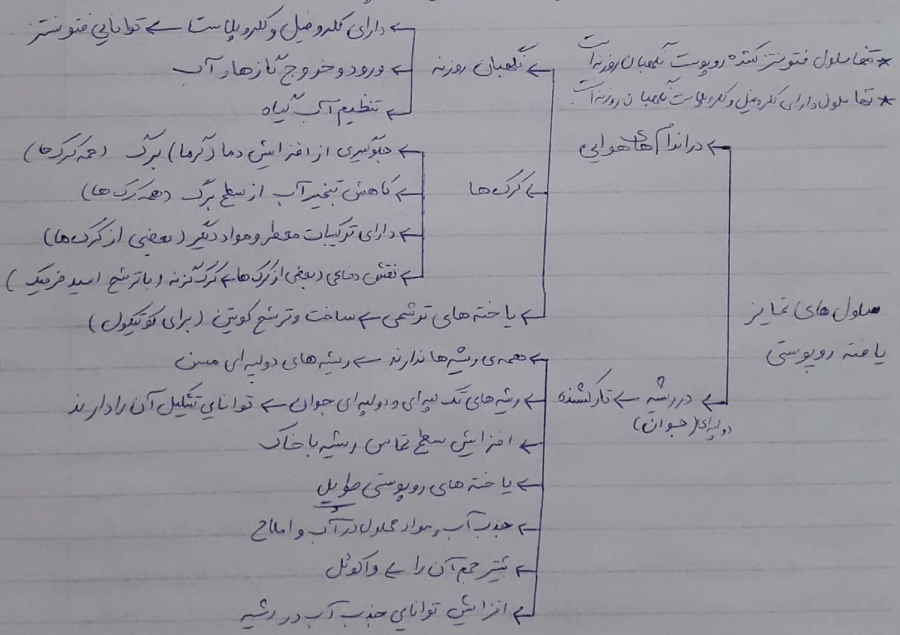 * تنها سلول فتوسنتز کننده روپوست نگهبان روزنه است
* تنها سلول دارای کلروفیل و کلروپلاست نگهبان روزنه است
سلول های تمایز یافته روپوستی
← در اندام های هوایی
← نگهبان روزنه
← دارای کلروفیل و کلروپلاست ← توانایی فتوسنتز
← ورود و خروج گازها و آب
← تنظیم آب گیاه
← کرک ها
← جلوگیری از افزایش دما (گرما) برگ (همه کرک ها)
← کاهش تبخیر آب از سطح برگ (همه کرک ها)
← دارای ترکیبات معطر و مواد دیگر (بعضی از کرک ها)
← نقش دفاعی (بعضی از کرک ها ← کرک گزنه (با ترشح اسید فرمیک)
← یاخته های ترشحی ← ساخت و ترشح کوتین (برای کوتیکول)
← در ریشه ← تارکشنده
دولپه ای (جوان)
← همه ی ریشه ها ندارند ← ریشه های دولپه ای مسن
← ریشه های تک لپه ای و دولپه ای جوان ← توانایی تشکیل آن را دارند
← افزایش سطح تماس ریشه با خاک
← یاخته های روپوستی طویل
← جذب آب و مواد محلول در آب و املاح
← بیشتر حجم آن را ← واکوئل
← افزایش توانایی جذب آب در ریشه